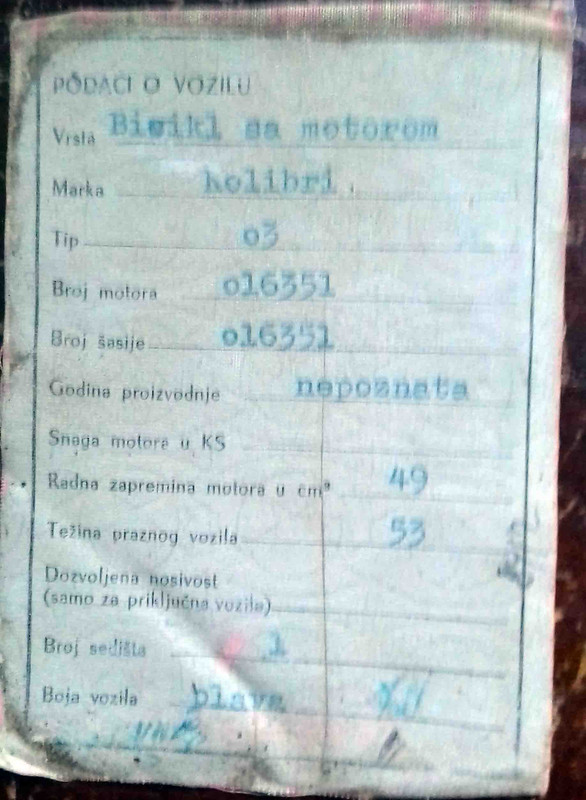 PODACI O VOZILU
Vrsta Bisikl sa motorom
Marka kolibri
Tip o3
Broj motora o16351
Broj šasije o16351
Godina proizvodnje nepoznata
Snaga motora u KS
Radna zapremina motora u cm³ 49
Težina praznog vozila 53
Dozvoljena nosivost
(samo za priključna vozila)
Broj sedišta 1
Boja vozila plava